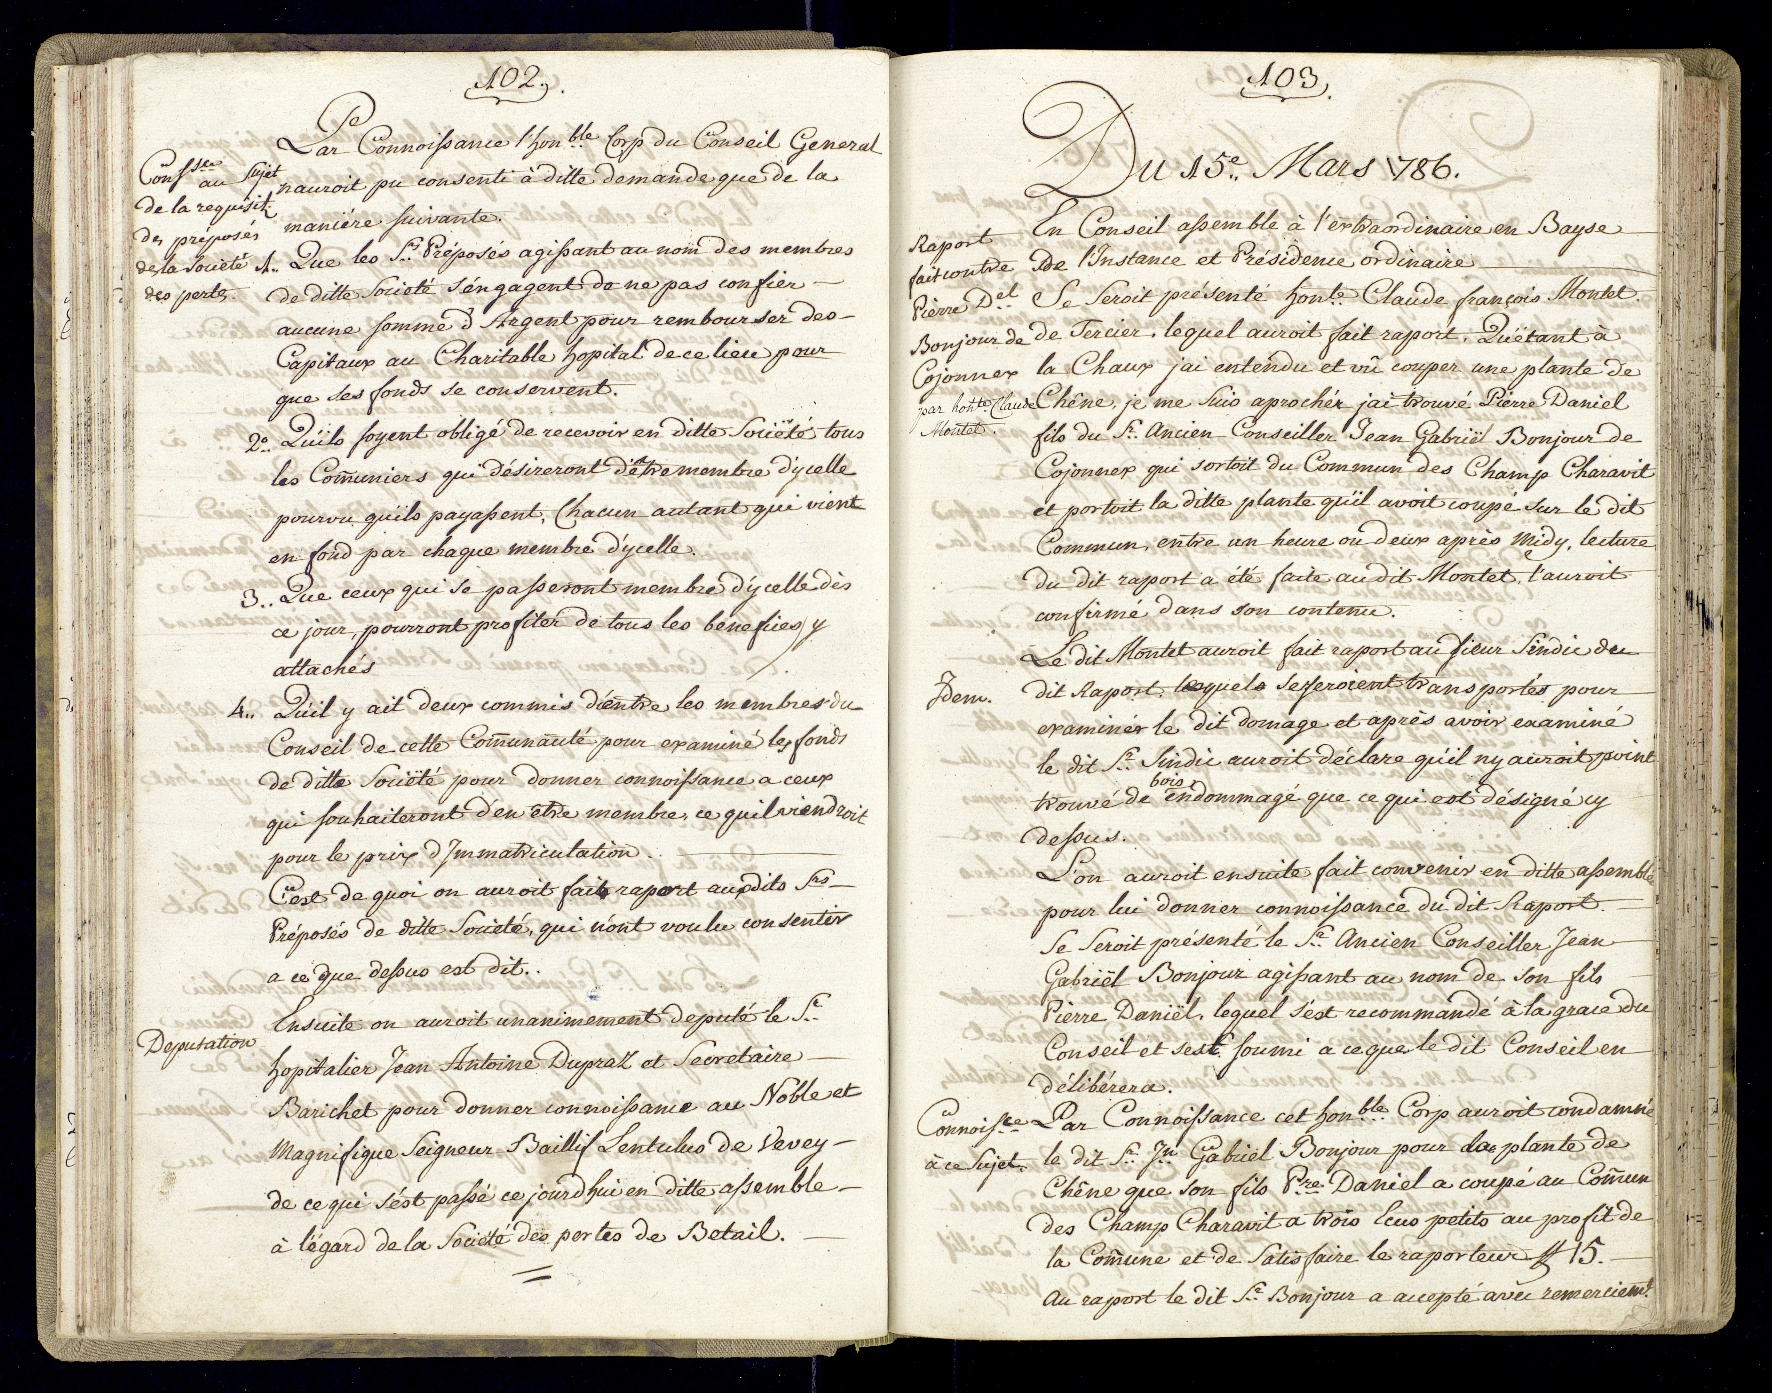 102.
Par Connoissance l'hon.ble Corp du Conseil General
Conss.ce au Sujet
de la requisit.
des préposés
de la Societé
des pertes.
nauroit pu consenti à ditte demande que de la
maniére suivante.
1.. Que les S.rs Préposés agissant au nom des membres
de ditte Societé s'éngagent do ne pas confier —
aucune somme d'Argent pour rembourser des —
Capitaux au Charitable hopital de ce lieu pour
que ses fonds se conservent.
2.o Quïls soyent obligé de recevoir en ditte Societé tous
les Com̄uniers qui désireront d'être membre d'ycelle
pourvu quïls payassent, Chacun autant qui vient
en fond par chaque membre d'ycelle.
3.. Que ceux qui se passeront membre d'ycelle dès
ce jour, pourront profiter de tous les benefices y
attachés
4.. Qu'il y ait deux commis d'entre les membres du
Conseil de cette Com̄unauté pour examiné les fonds
de ditte Societé pour donner connoissance a ceux
qui souhaiteront d'en etre membre, ce quil viendroit
pour le prix d'Immatriculation. —
C'est de quoi on auroit fait raport auxdits S.rs —
Préposés de ditte Societé, qui n'ont voulu consentir
a ce que dessus est dit..
Deputation
Ensuite on auroit unanimement deputé le S.r
hopitalier Jean Antoine Dupraz et Secretaire —
Barichet pour donner connoissance au Noble et
Magnifique Seigneur Baillif Lentulus de Vevey —
de ce qui s'ést passé ce jourdhui en ditte assemble —
à l'égard de la Societé des pertes de Betail. —
103.
Du 15.e Mars 1786.
Raport
fait contre
Pierre D.el
Bonjour de
Cojonnex
par hon.te Claude
Montet.
En Conseil assemble à l'extraordinaire en Bayse —
De l'Instance et Présidence ordinaire —
Se Seroit présenté hon.te Claude françois Montet.
de Tercier, lequel auroit fait raport, Qu'étant à
la Chaux jai entendu et vû couper une plante de
Chêne, je me suis aprochér jai trouvé Pierre Daniel
fils du S.r Ancien Conseiller Jean Gabriël Bonjour de
Cojonnex qui sortoit du Commun des Champ Charavit
et portoit la ditte plante quïl avoit coupé sur le dit
Commun, entre un heure ou deux après Midy, lecture
du dit raport a été faite au dit Montet, l'auroit
confirmé dans son contenu.
Idem.
Le dit Montet auroit fait raport au sieur Sindic du
dit Raport, lesquels se seroient transportés pour
examinér le dit domage et après avoir examiné
le dit S.r Sindic auroit déclare qu'il ny auroit point
trouvé de bois endommagé que ce qui est désigné cy
dessus.
L'on auroit ensuite fait convenir en ditte assemblé
pour lui donner connoissance du dit Raport. —
Se Seroit présenté le S.r Ancien Conseiller Jean —
Gabriël Bonjour agissant au nom de son fils
Pierre Daniël, lequel s'ést recommandé à la grace du
Conseil et sest soumi a ce que le dit Conseil en
délibérera.
Connoiss.ce
à ce Sujet.
Par Connoissance cet hon.ble Corp auroit condamné
le dit S.r J.n Gabriel Bonjour pour la plante de
Chêne que son fils P.re Daniel a coupé au Com̄un
des Champ Charavit a trois Ecus petits au profit de
la Com̄une et de Satisfaire le raporteur ff 15. —
Au raport le dit S.r Bonjour a accepté avec remerciem.t